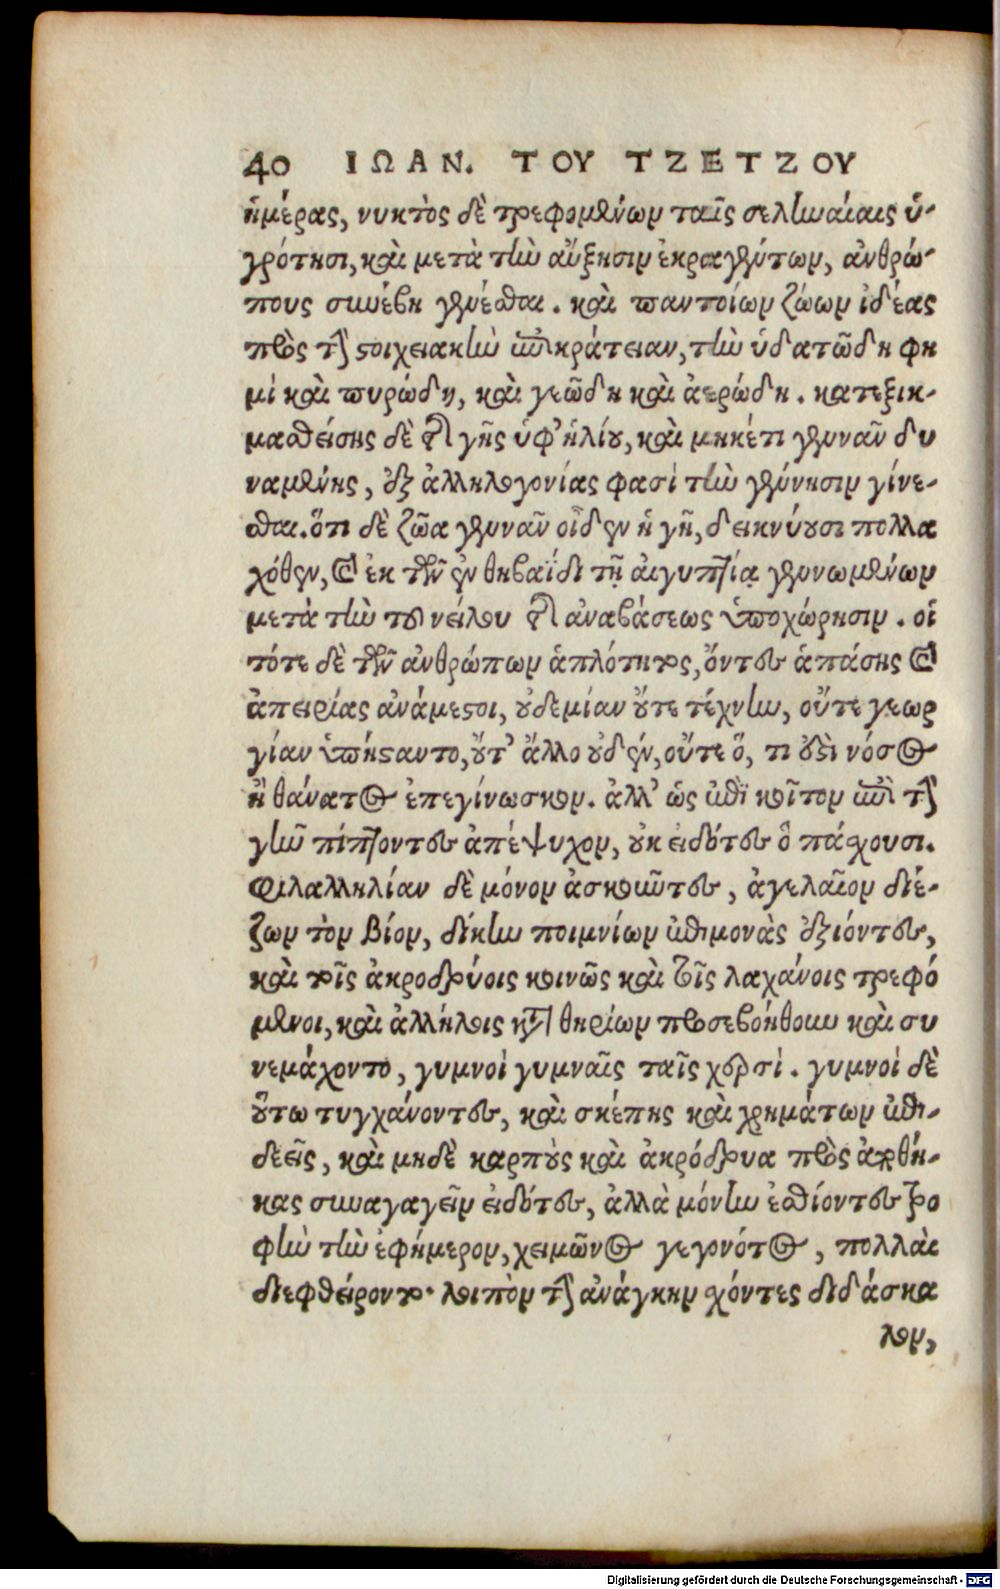 40 ΙΩΑΝ. ΤΟΥ ΤΖΕΤΖΟΥ
ἡμέρας, νυκτὸς δὲ τρεφομένων ταῖς σεληναίαις ὑ-
γρότησι, καὶ μετὰ τὴν αὔξησιν ἐκραγέντων, ἀνθρώ-
πους συνέβη γενέσθαι. καὶ παντοίων ζώων ἰδέας
πρὸς τὴν στοιχειακὴν ἐπικράτειαν, τὴν ὑδατώδη φη
μὶ καὶ πυρώδη, καὶ γεώδη καὶ ἀερώδη. κατεξικ-
μασθείσης δὲ τῆς γῆς ὑφ' ἡλίου, καὶ μηκέτι γεννᾶν δυ
ναμένης, ἐξ ἀλληλογονίας φασὶ τὴν γέννησιν γίνε-
σθαι. ὅτι δὲ ζῶα γεννᾶν οἶδεν ἡ γῆ, δεικνύουσι πολλα
χόθεν, καὶ ἐκ τῶν ἐν θηβαΐδι τῇ αἰγυπτίᾳ γεννωμένων
μετὰ τὴν τοῦ νείλου τῆς ἀναβάσεως ὑποχώρησιν. οἱ
τότε δὲ τῶν ἀνθρώπων ἁπλότητος, ὄντες ἁπάσης καὶ
ἀπειρίας ἀνάμεστοι, οὐδεμίαν οὔτε τέχνην, οὔτε γεωρ
γίαν ἠπήσαντο, οὔτ' ἄλλο οὐδέν, οὔτε ὅ, τι ἐστὶ νόσος
ἢ θάνατος ἐπεγίνωσκον. ἀλλ' ὡς ἐπὶ κοῖτον ἐπὶ τὴν
γῆν πίπτοντες ἀπέψυχον, οὐκ εἰδότες ὃ πάσχουσι.
Φιλαλληλίαν δὲ μόνον ἀσκοῦντες, ἀγελαῖον διέ-
ζων τὸν βίον, δίκην ποιμνίων ἐπὶ μονὰς ἐξιόντες,
καὶ τοῖς ἀκροδρύοις κοινῶς καὶ τοῖς λαχάνοις τρεφό
μενοι, καὶ ἀλλήλοις κατὰ θηρίων προσεβοήθουν καὶ συ
νεμάχοντο, γυμνοὶ γυμναῖς ταῖς χερσί. γυμνοὶ δὲ
οὕτω τυγχάνοντες, καὶ σκέπης καὶ χρημάτων ἐπι-
δεεῖς, καὶ μηδὲ καρποὺς καὶ ἀκρόδρυα πρὸς ἀποθή-
κας συναγαγεῖν εἰδότες, ἀλλὰ μόνην ἐσθίοντες τρο
φὴν τὴν ἐφήμερον, χειμῶνος γεγονότος, πολλοὶ
διεφθείροντο. λοιπὸν τὴν ἀνάγκην σχόντες διδάσκα
λον,
Digitalisierung gefördert durch die Deutsche Forschungsgemeinschaft - DFG